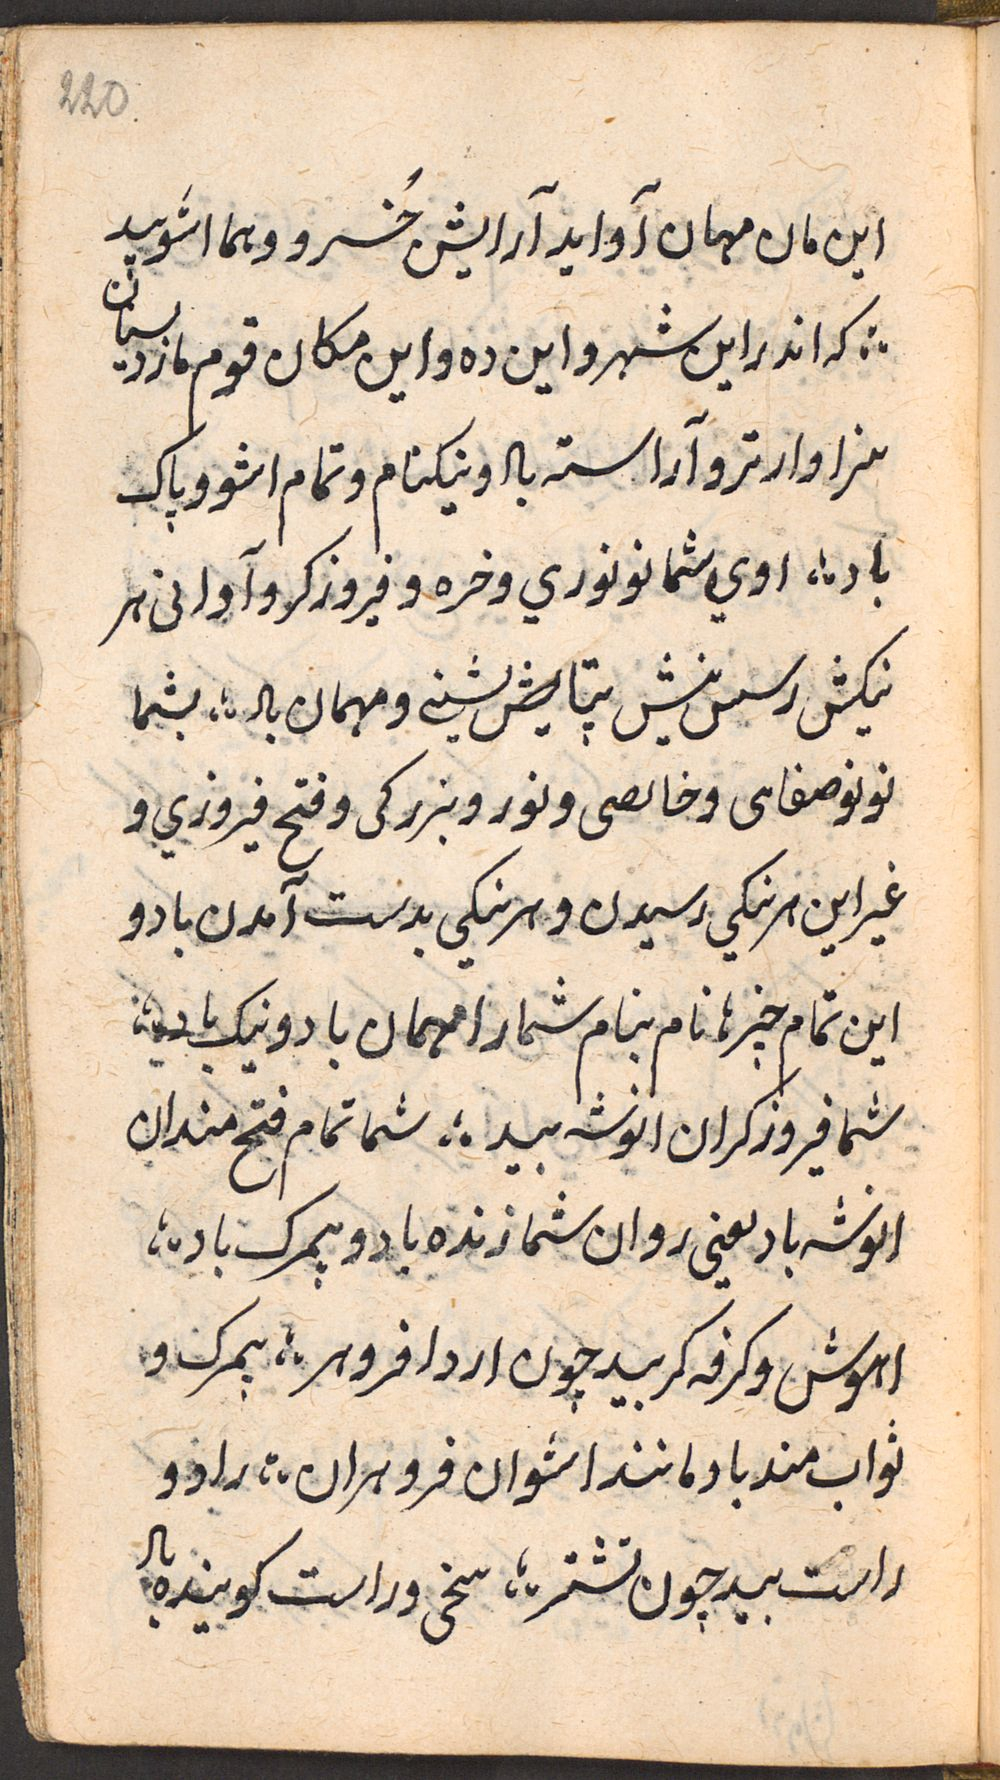 220
این مان مهمان آواید آرایش خُسرو و هما اشویید
؞ که اندر این شهر و این ده و این مکان قوم مازدیسیان
سزاوارتر و آراسته باد و نیکنام و تمام اشو و پاک
باد ؞ اوي شما نو نوري و خره و فیروزکر و آوانی هر
نیکش رسش نیش پتایش نشینے و مهمان باد ؞ بشما
نو نو صفاهی و خالصی و نور و بزرکی و فتح فیروزي و
غیر این هر نیکي رسیدن و هر نیکي بدست آمدن باد و
این تمام چیزها نام بنام شما را مهمان باد و نیک باد ؞
شما فیروزکران انوشه بید ؞ شما تمام فتح مندان
انوشه باد یعنی روان شما زنده باد و بیمرک باد ؞
اهوش و کرفه کر بید چون اردا فروهر ؞ بیمرک و
ثواب مند باد مانند اشوان فروهران ؞ راد و
راست بید چون تشتر ؞ سخی و راست کوینده باد